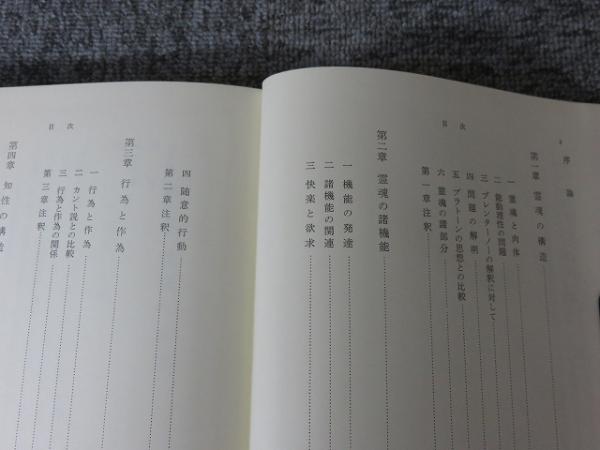 目次
序論
第一章 霊魂の構造
一 霊魂と肉体
二 能動理性の問題
三 ブレンターノーの解釈に対して
四 問題の解明
五 プラトーンの思想との比較
六 霊魂の諸部分
第一章注釈
第二章 霊魂の諸機能
一 機能の発達
二 諸機能の関連
三 快楽と欲求
目次
四 随意的行動
第二章注釈
第三章 行為と作為
一 行為と作為
二 カント説との比較
三 行為と作為の関係
第三章注釈
第四章 知性の構造